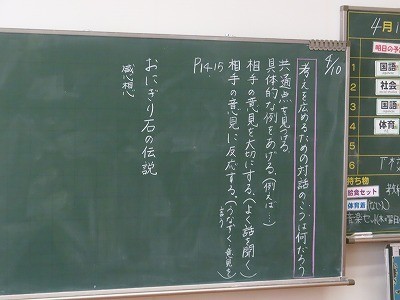 4/10
考えを広めるための対話のこつは何だろう
共通点を見つける
具体的な例をあげる（例えば…）
相手の意見を大切にする（よく話を聞く）
相手の意見に反応する（うなずく・意見を言う）
P14・15
おにぎり石の伝説
感想
4月1
明日の予
1 国語
2 社会
3 国語
4 体育
5
6
持ち物
給食セット
体育着